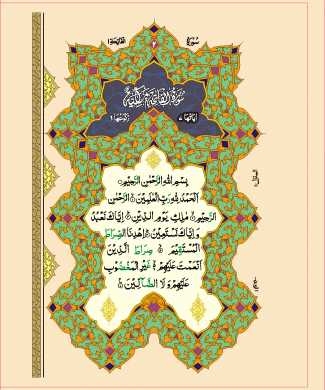 سُوْرَةُ
اَلْفَاتِحَة ١
٢
سُوْرَةُ الْفَاتِحَةِ مَكِّيَّةٌ
اٰيَاتُهَا ٧
رُكُوْعُهَا ١
بِسْمِ اللّٰهِ الرَّحْمٰنِ الرَّحِيْمِ
اَلْحَمْدُ لِلّٰهِ رَبِّ الْعٰلَمِيْنَ ۙ الرَّحْمٰنِ
الرَّحِيْمِ ۙ مٰلِكِ يَوْمِ الدِّيْنِ ۗ اِيَّاكَ نَعْبُدُ
وَاِيَّاكَ نَسْتَعِيْنُ ۗ اِهْدِنَا الصِّرَاطَ
الْمُسْتَقِيْمَ ۙ صِرَاطَ الَّذِيْنَ
اَنْعَمْتَ عَلَيْهِمْ ۙ غَيْرِ الْمَغْضُوْبِ
عَلَيْهِمْ وَلَا الضَّآلِّيْنَ